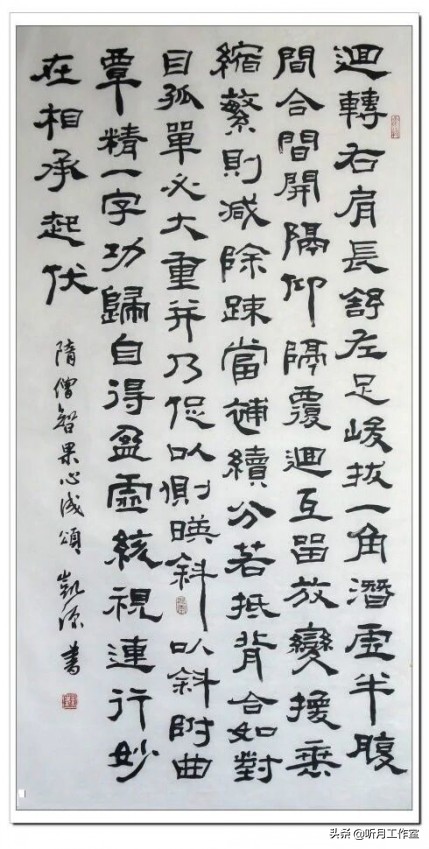 迴轉右肩長舒左足峻拔一角潛虛半腹
間合間開隔仰隔覆迴互留放變換垂
縮繁則減除踈當補續分若抵背合如對
目孤單必大重并乃促以側映斜以斜附曲
覃精一字功歸自得盈虛核視連行妙
在相承起伏
隋僧智果心成頌 凱源書
头条 @听月工作室